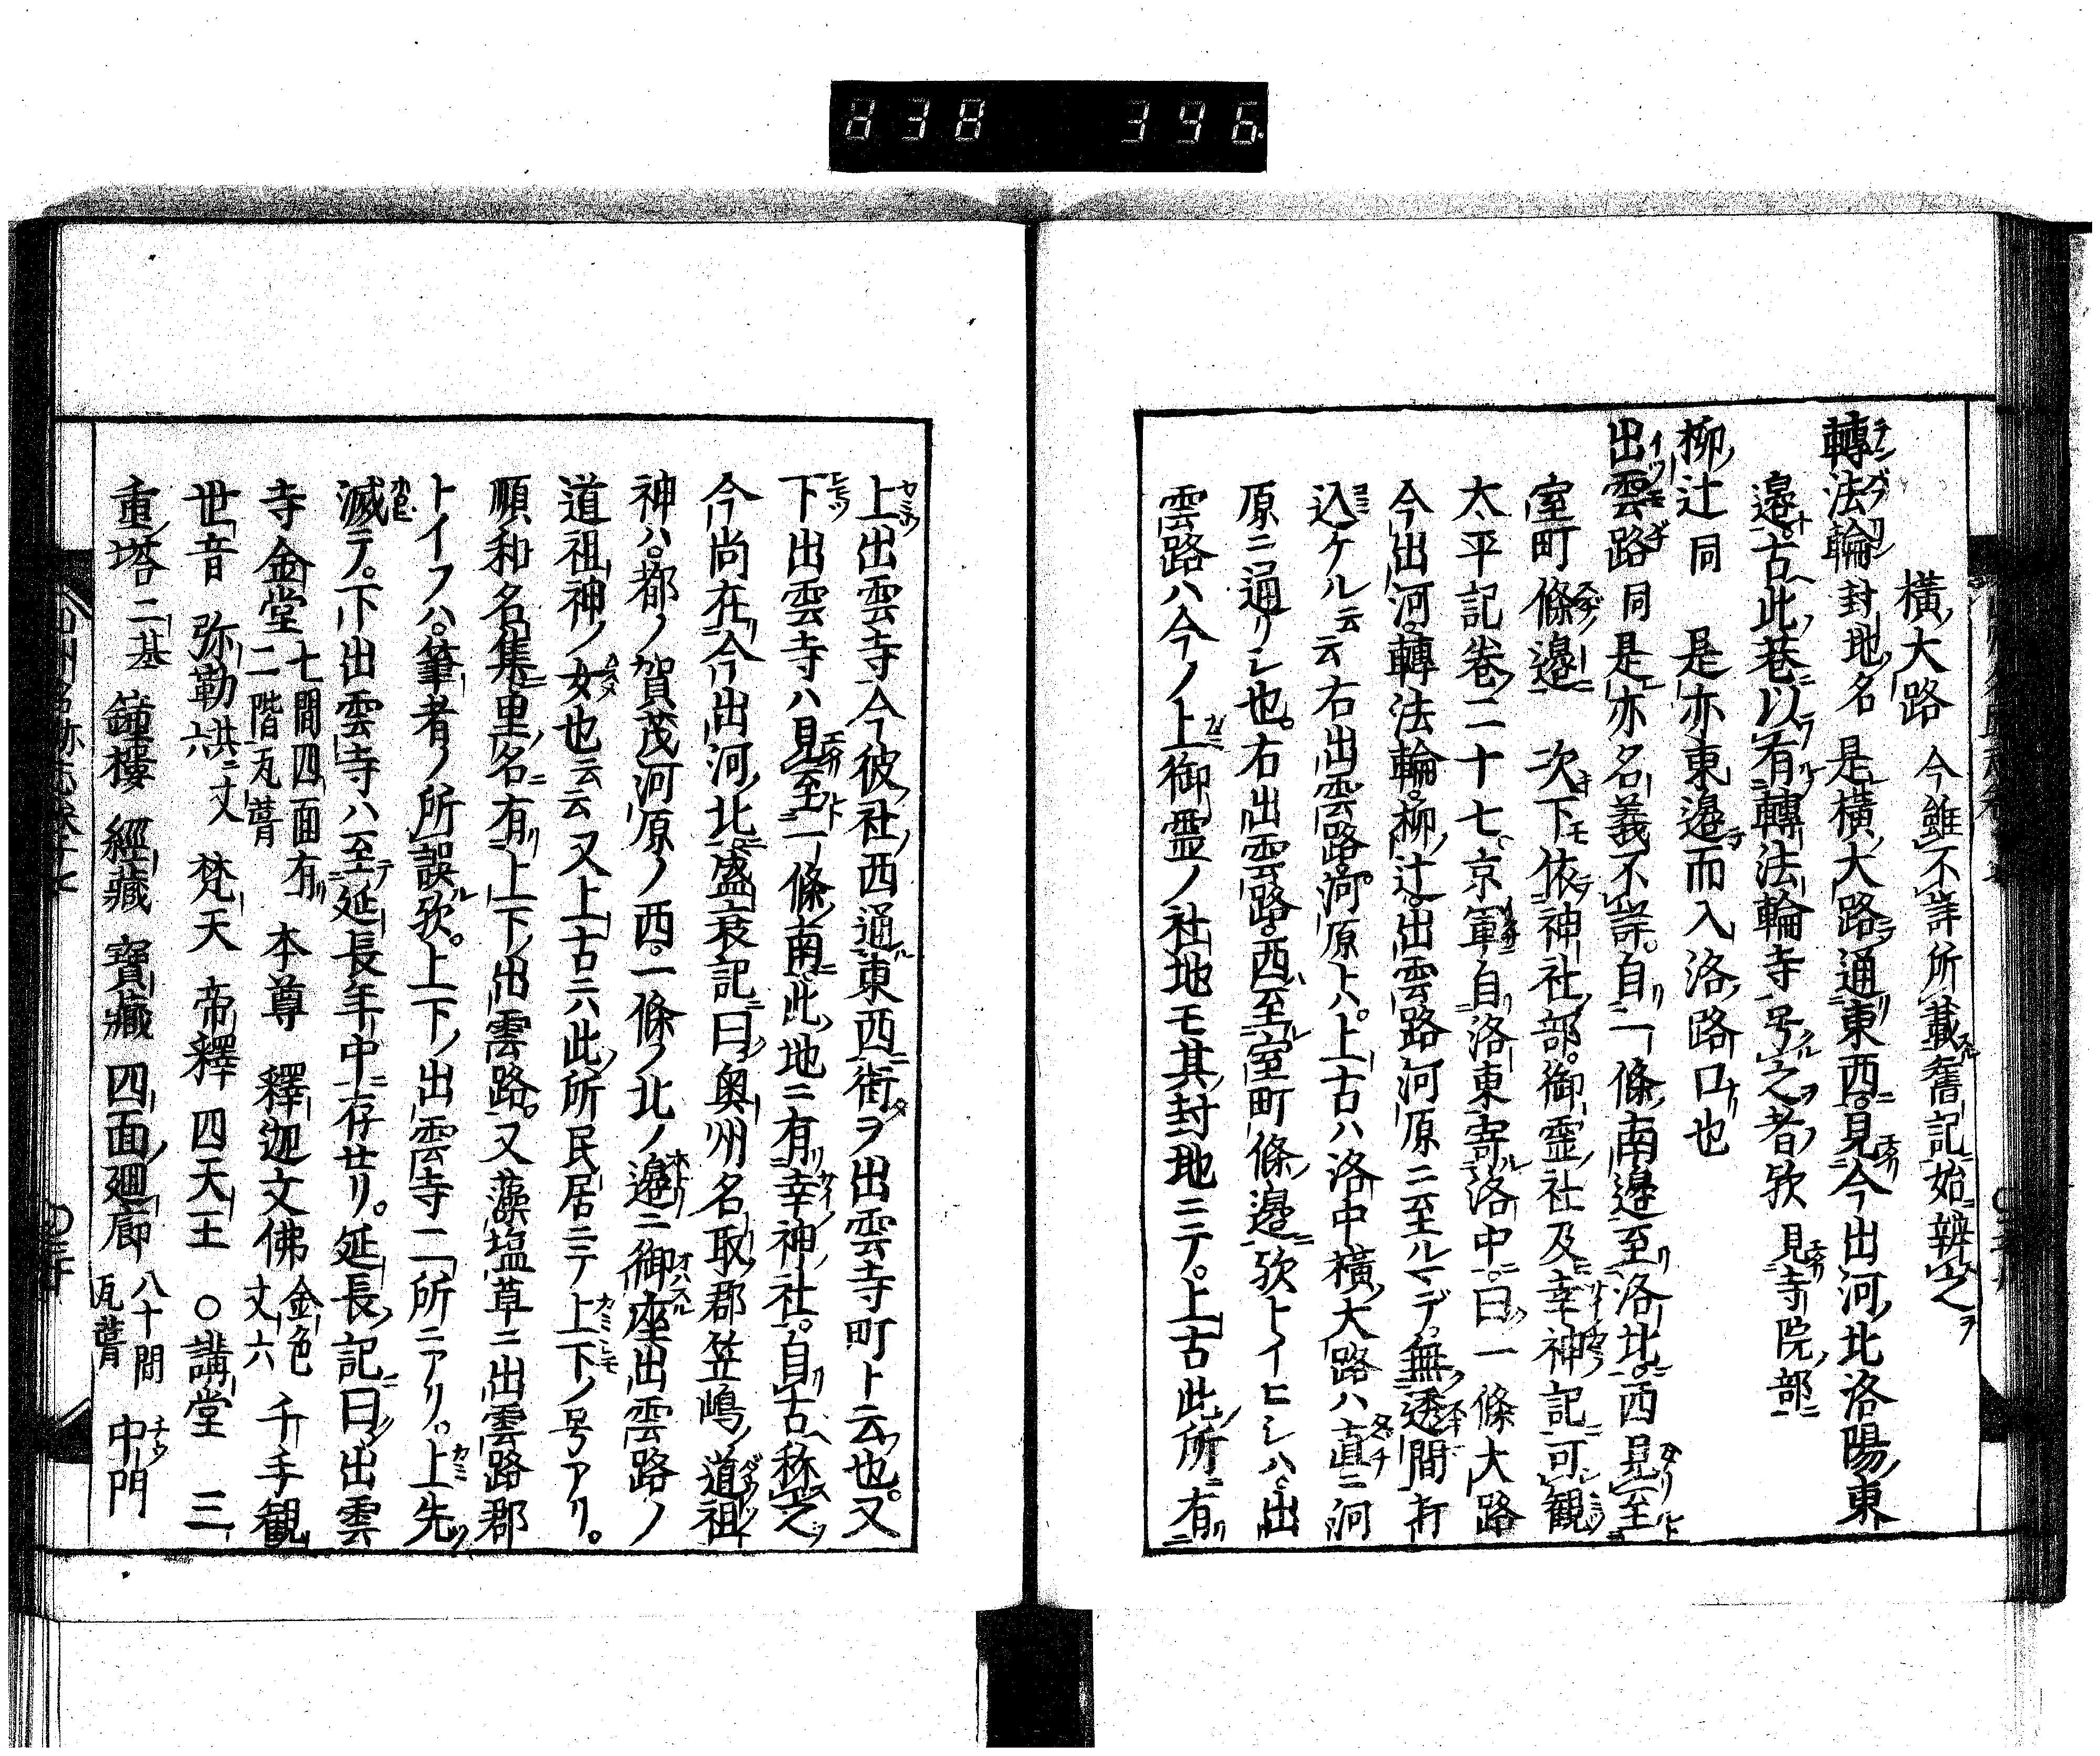 238 396
横大路 今雖不詳所載舊記始辨之ヲ
轉法輪 封地ノ名 是横大路通東西見今出河北洛陽東
邉古此巷以有轉法輪寺号之者歟 見寺院部
柳辻 同 是亦東邉而入洛路口也
出雲路 同 是亦名義不詳自一條南邉至洛北西見至
室町條邉 次下依神社部御霊社及幸神記可観
太平記巻二十七京軍自洛東寄洛中曰一條大路
今出河轉法輪柳辻出雲路河原ニ至ルマデ無透間打
込ケル云云右出雲路河原トハ上古ハ洛中横大路ハ直ニ河
原ニ通リシ也右出雲路西至室町條邉歟トイヒシハ出
雲路ハ今ノ上御霊ノ社地モ其封地ニテ上古此所有
上出雲寺今彼社西通東西街ヲ出雲寺町ト云也又
下出雲寺ハ見至一條南此地ニ有幸神社自古称之
今尚在今出河北盛衰記曰奥州名取郡笠嶋道祖
神ハ都ノ賀茂河原ノ西一條ノ北ノ邉ニ御座出雲路ノ
道祖神ノ女也云云又上古六此所民居ニテ上下ノ号アリ
順和名集里名有上下出雲路又藻塩草ニ出雲路郡
トイフハ筆者ノ所誤歟上下ノ出雲寺二所ニアリ上先
滅テ下出雲寺ハ至延長年中存せリ延長記曰出雲
寺金堂 七間四面有二階瓦葺 本尊 釋迦文佛 金色丈六 千手観
世音 弥勒 共ニ丈六 梵天 帝釋 四天王 ○講堂 三
重塔二基 鐘樓 經藏 寶藏 四面廻廊 八十間瓦葺 中門